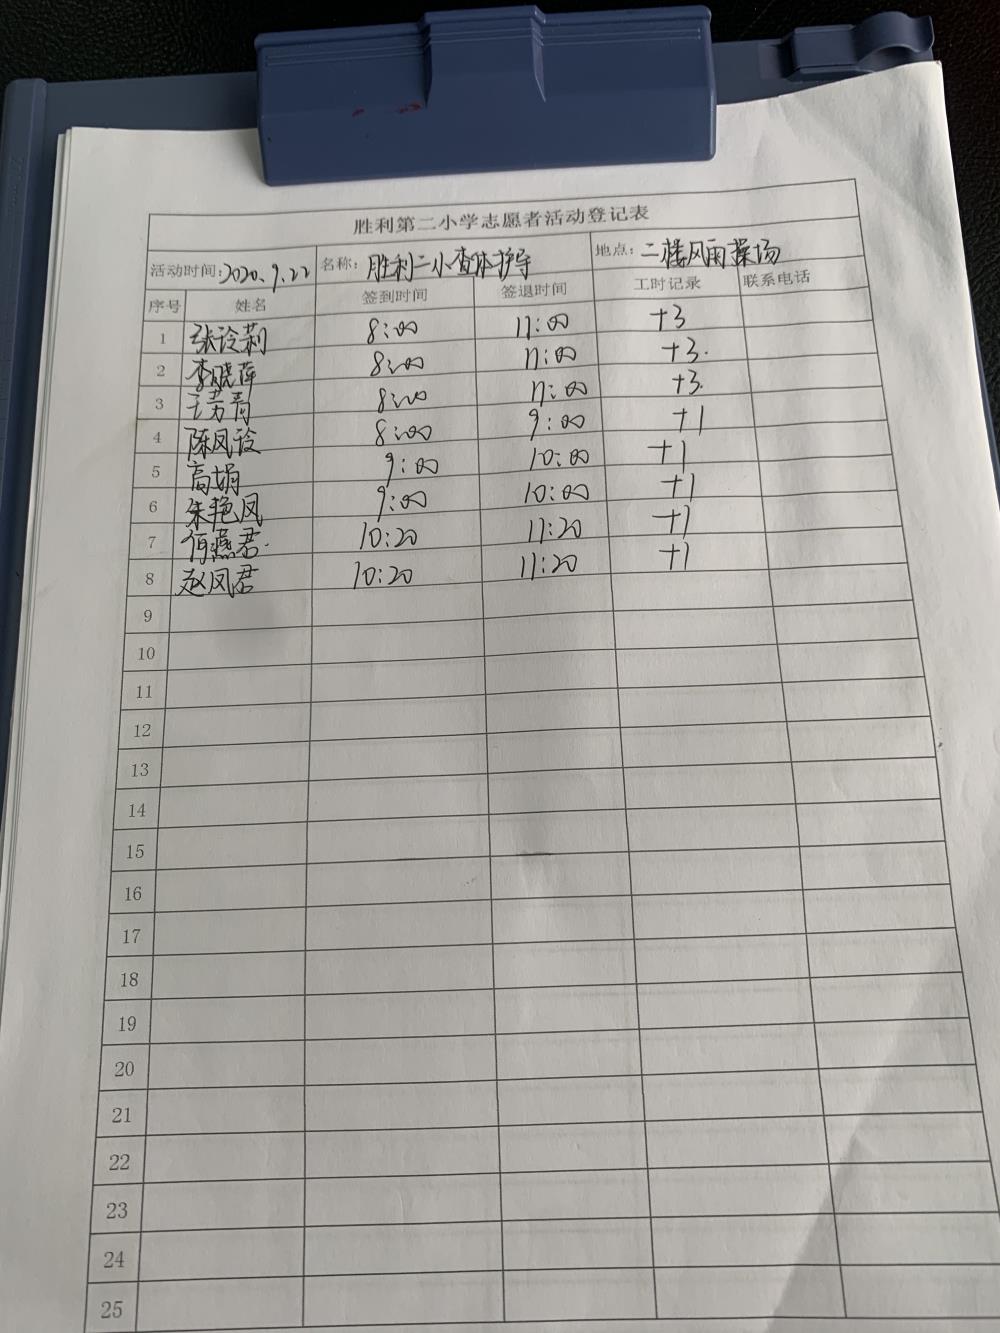 胜利第二小学志愿者活动登记表
活动时间:2020.9.22 名称:胜利二小查体护导 地点:二楼风雨操场
序号 姓名 签到时间 签退时间 工时记录 联系电话
1 张玲莉 8:00 11:00 +3
2 李晓萍 8:00 11:00 +3.
3 王芳青 8:00 11:00 +3.
4 陈凤玲 8:00 9:00 +1
5 高娟 9:00 10:00 +1
6 朱艳凤 9:00 10:00 +1
7 何燕君. 10:20 11:20 +1
8 赵凤君 10:20 11:20 +1
9
10
11
12
13
14
15
16
17
18
19
20
21
22
23
24
25